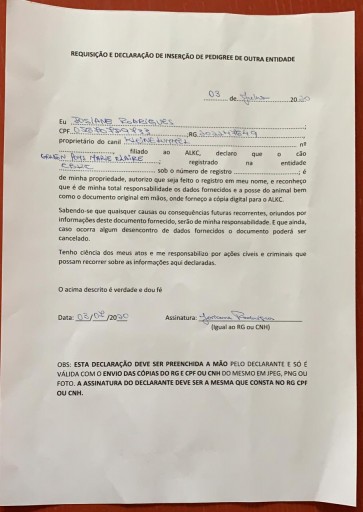 REQUISIÇÃO E DECLARAÇÃO DE INSERÇÃO DE PEDIGREE DE OUTRA ENTIDADE
03 de Julho 2020
Eu JOSIANE RODRIGUES
CPF RG
proprietário do canil nº
filiado ao ALKC, declaro que o cão
registrado na entidade
sob o número de registro ; é
de minha propriedade, autorizo que seja feito o registro em meu nome, e reconheço
que é de minha total responsabilidade os dados fornecidos e a posse do animal bem
como o documento original em mãos, onde forneço a cópia digital para o ALKC.
Sabendo-se que quaisquer causas ou consequências futuras recorrentes, oriundos por
informações deste documento fornecido, serão de minha responsabilidade. E que ainda,
caso ocorra algum desencontro de dados fornecidos o documento poderá ser
cancelado.
Tenho ciência dos meus atos e me responsabilizo por ações cíveis e criminais que
possam recorrer as informações aqui declaradas.
O acima descrito é verdade e dou fé
Data: /2020 Assinatura:
(Igual ao RG ou CNH)
OBS: ESTA DECLARAÇÃO DEVE SER PREENCHIDA A MÃO PELO DECLARANTE E SÓ É
VÁLIDA COM O ENVIO DAS CÓPIAS DO RG E CPF OU CNH DO MESMO EM JPEG, PNG OU
FOTO. A ASSINATURA DO DECLARANTE DEVE SER A MESMA QUE CONSTA NO RG CPF
OU CNH.